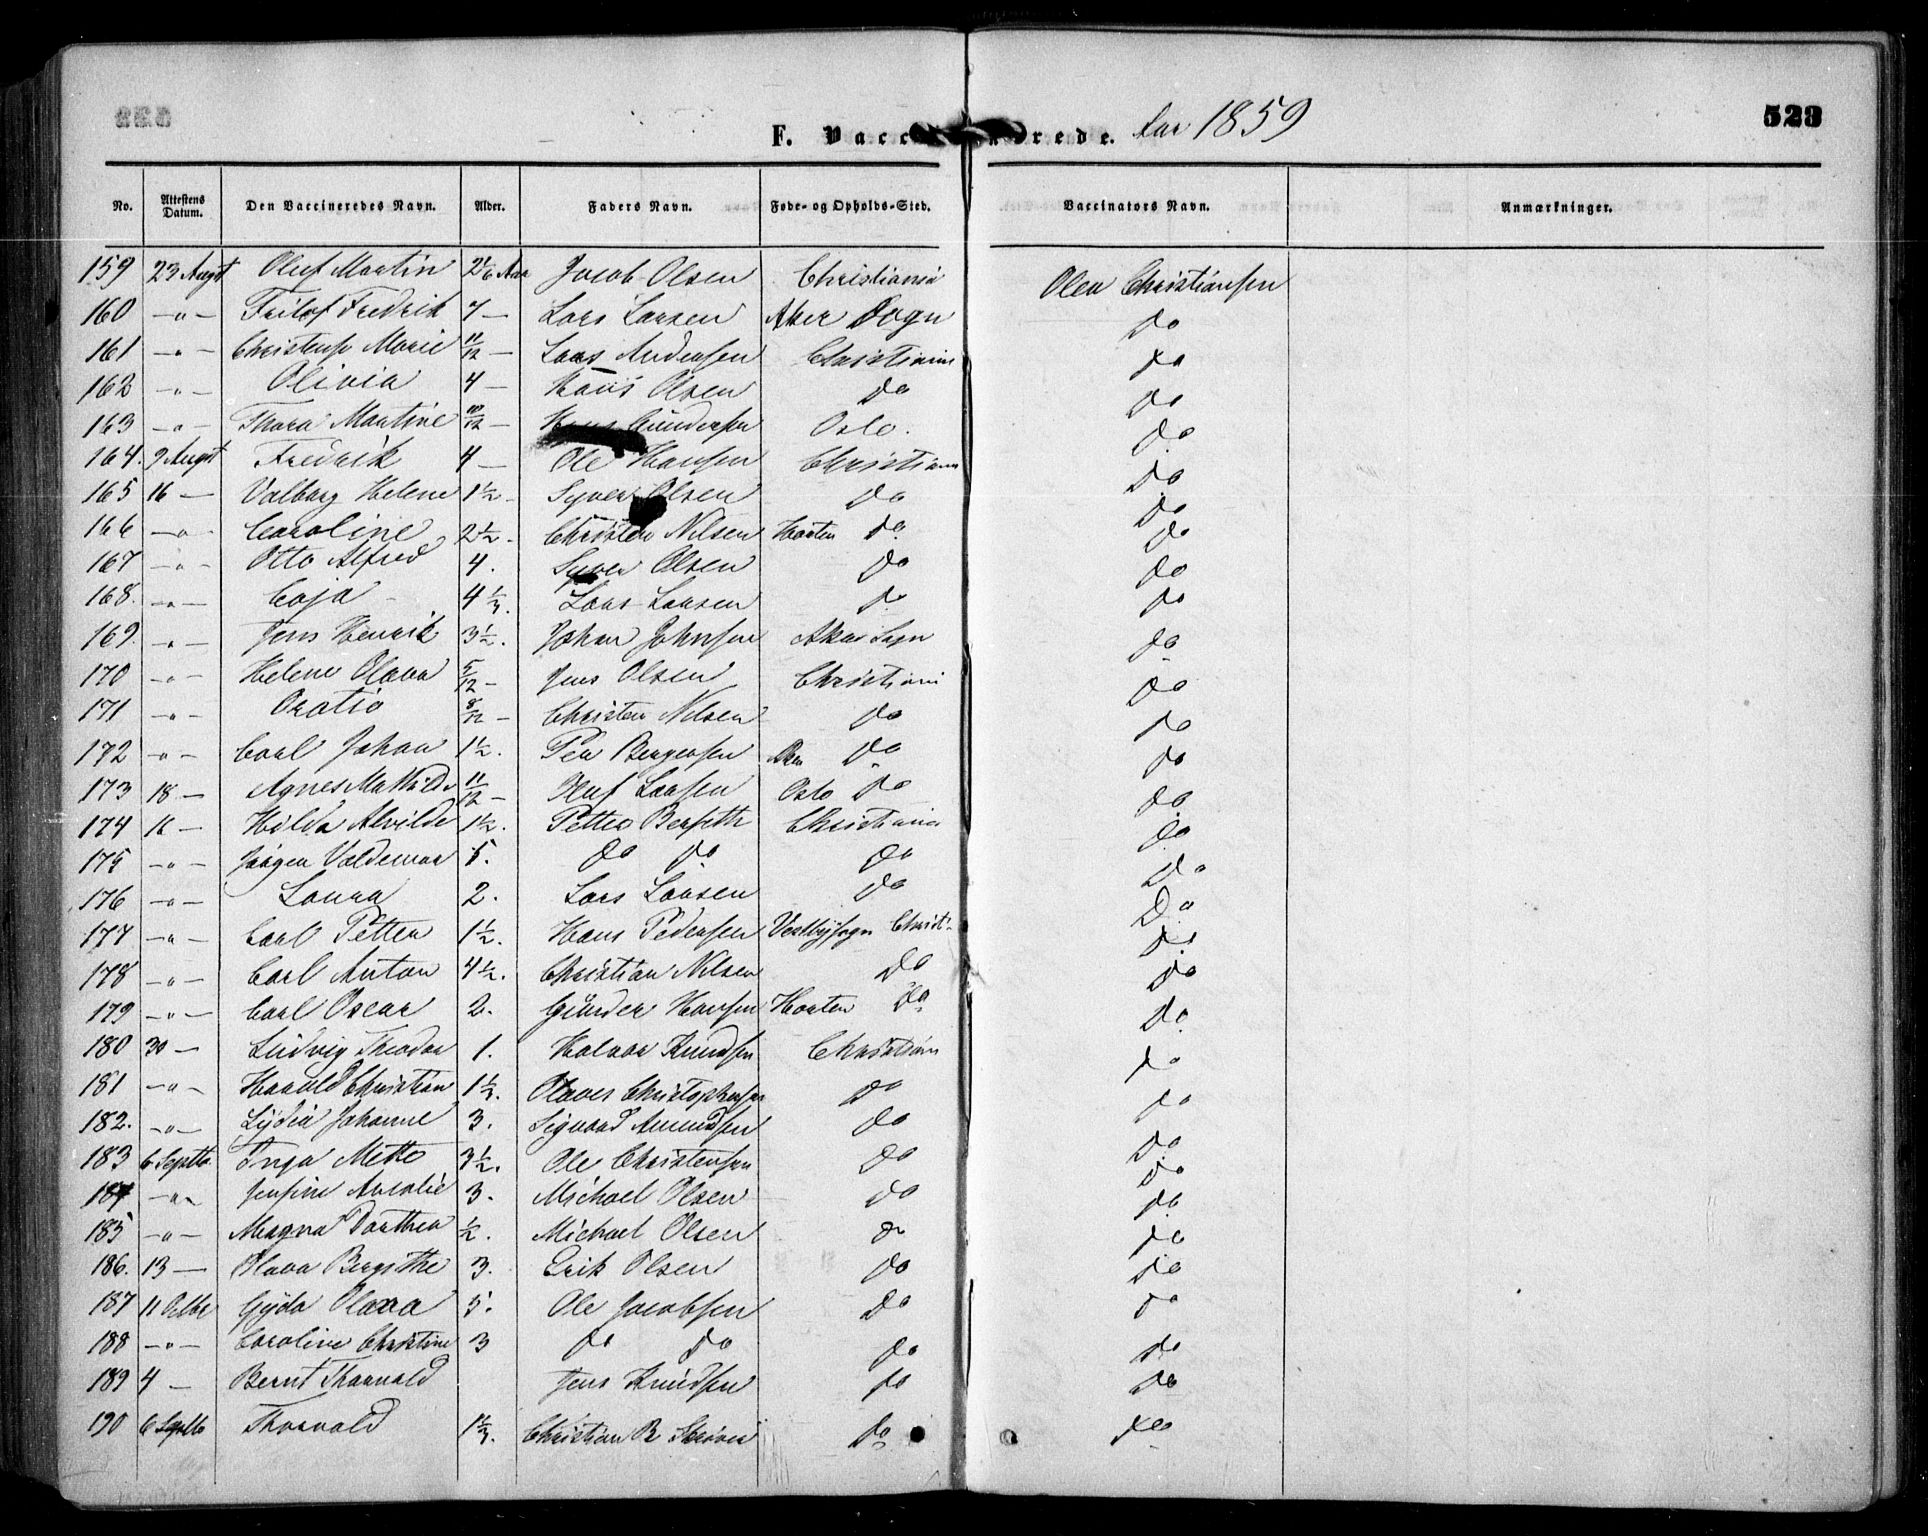 F. Vacc rede. for 1859 523
No. Attestens Datum. Den Vaccineredes Navn. Alder. Faders Navn. Føde- og Opholds-Sted. Vaccinators Navn. Anmærkninger.
159 23 Augst Oluf Martin 2 1/6 Aar Jacob Olsen Christiania Olea Christiansen
160 -"- Fritof Fredrik 7 - Lars Larsen Aker Sogn Do
161 -"- Marie 11/12 - Lars Andersen Christiania Do
162 -"- Olivia 4 - Hans Olsen Do Do
163 -"- Thora Martine 10/12 - Hans Gundersen Oslo. Do
164. 9 Augst Fredrik 4 - Ole Hansen Christiania Do
165 16 - Valborg Helene 1 1/2 - Syver Olsen Do Do
166 -"- Caroline 2 1/2. Christen Nilsen Horten Do. Do
167 -"- Otto Alfred 4. Syver Olsen Do Do
168. -"- Caja 4 1/3. Lars Larsen Do Do
169. -"- Jens Henrik 3 1/2. Johan Johnsen Aker Sogn Do
170 -"- Helene Olava 5/12 - Jens Olsen Christiani Do
171 -"- Oratio 8/12 - Christen Nilsen Do Do
172 -"- Carl Johan 1 1/2. Peer Bergersen Do Do
173 18 - Agnes Mathilde 11/12 - Oluf Larsen Oslo Do Do
174 16 - Hilda Alvilde 1 1/2. Petter Berseth Christiania Do
175 -"- Jørgen Valdemar 5. Do Do Do Do
176 -"- Laura 2. Lars Larsen Do Do
177 -"- Carl Petter 1 1/2. Hans Pedersen Vestbysogn Christ Do
178 -"- Carl Anton 4 1/2. Christian Nilsen Do Do
179 -"- Carl Oscar 2. Gunder Hansen Horten Do Do
180 30 - Ludvig Theodor 1. Halvor Knudsen Christiani Do
181 -"- Harald Christian 1 1/3. Olaves Christophersen Do Do
182. -"- Lydia Johanne 3. Sigvard Amundsen Do Do
183 6 Septbr Inga Mette 3 1/2. Ole Christensen Do Do
184 -"- Jensine Amalie 3. Michael Olsen Do Do
185 -"- Magna Dorthea 1/2. Michael Olsen Do Do
186. 13 - Olava Bergithe 3. Erik Olsen Do Do
187 11 Octbr Gyda Olava 5. Ole Jacobsen Do Do
188 -"- Caroline Christine 3 Do Do Do Do
189 4 - Bernt Thorvald Jens Knudsen Do Do
190 6 Septbr Thorvald 1 1/3. Christian Do Do